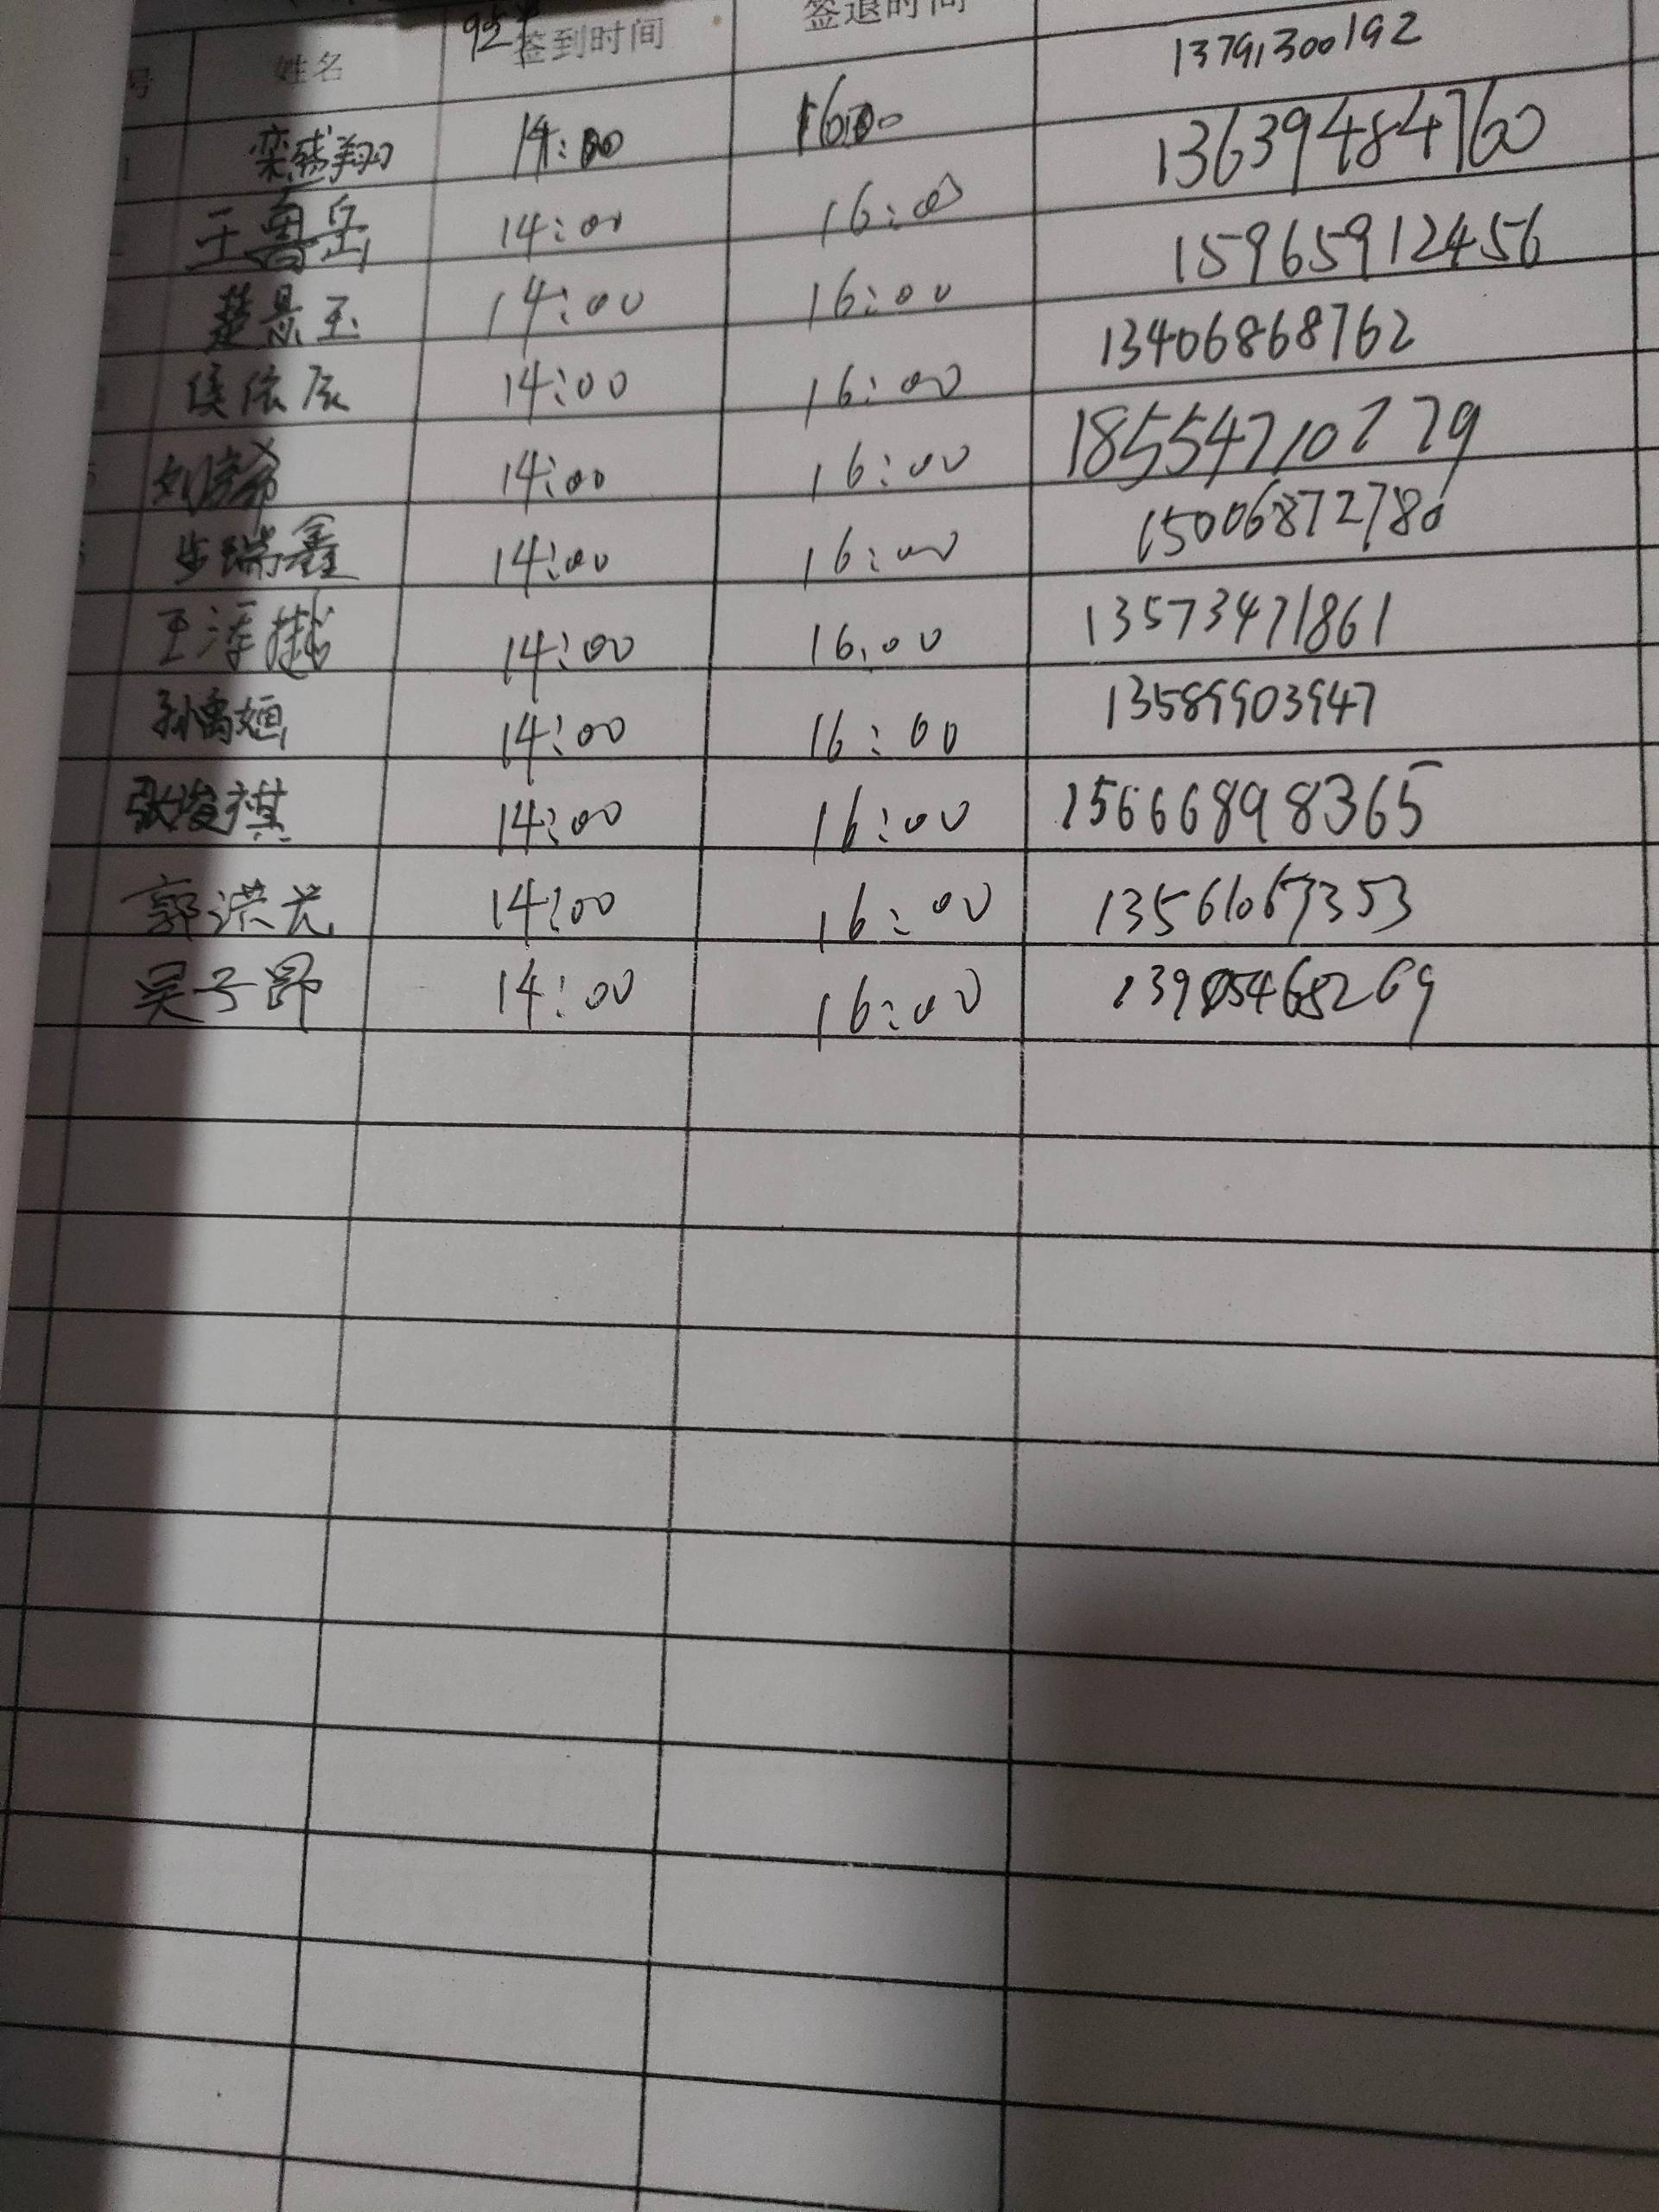 号 姓名 签到时间 签退时间 13791300192
1 栾盛翔 14:00 16:00 13639484760
王鲁岳 14:00 16:00 15965912456
楚景玉 14:00 16:00 13406868762
侯依辰 14:00 16:00 18554710779
刘 14:00 16:00 15006872780
步瑞鑫 14:00 16:00
王泽楷 14:00 16:00 13573471861
孙禹姮 14:00 16:00 13589903947
张俊祺 14:00 16:00 15666898365
郭洪光 14:00 16:00 13561067353
吴子昂 14:00 16:00 13905468269